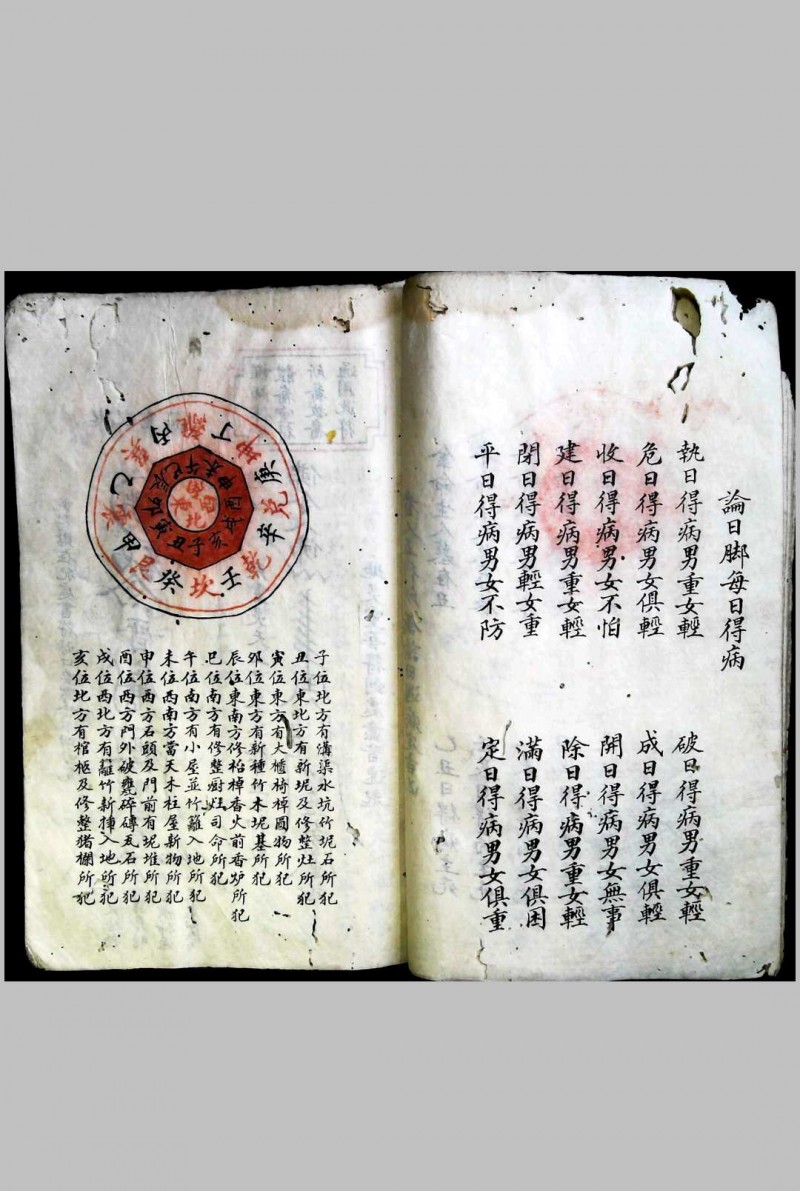 論日脚每日得病
執日得病男重女輕
破日得病男重女輕
危日得病男女俱輕
成日得病男女俱輕
收日得病男女不怕
開日得病男女無事
建日得病男重女輕
除日得病男重女輕
閉日得病男輕女重
滿日得病男女俱困
平日得病男女不防
定日得病男女俱重
離
丁
坤
庚
兌
辛
乾
壬
坎
癸
艮
甲
震
乙
巽
丙
子
丑
寅
卯
辰
巳
午
未
申
酉
戌
亥
南
西
北
東
子位北方有溝渠水坑竹坭石所犯
丑位東北方有新坭及修整灶所犯
寅位東方有大櫃椅棹圓物所犯
卯位東方有新種竹木坭基所犯
辰位東南方修枱棹香火前香炉所犯
巳位南方有修整厨灶司命所犯
午位南方有小屋並竹籬入地所犯
未位西南方當天木柱屋新物所犯
申位西方石頭及門前有坭堆所犯
酉位西方門外破甕碎磚瓦石所犯
戌位西北方有籬竹新揷入地所犯
亥位北方有棺柩及修整猪棚所犯